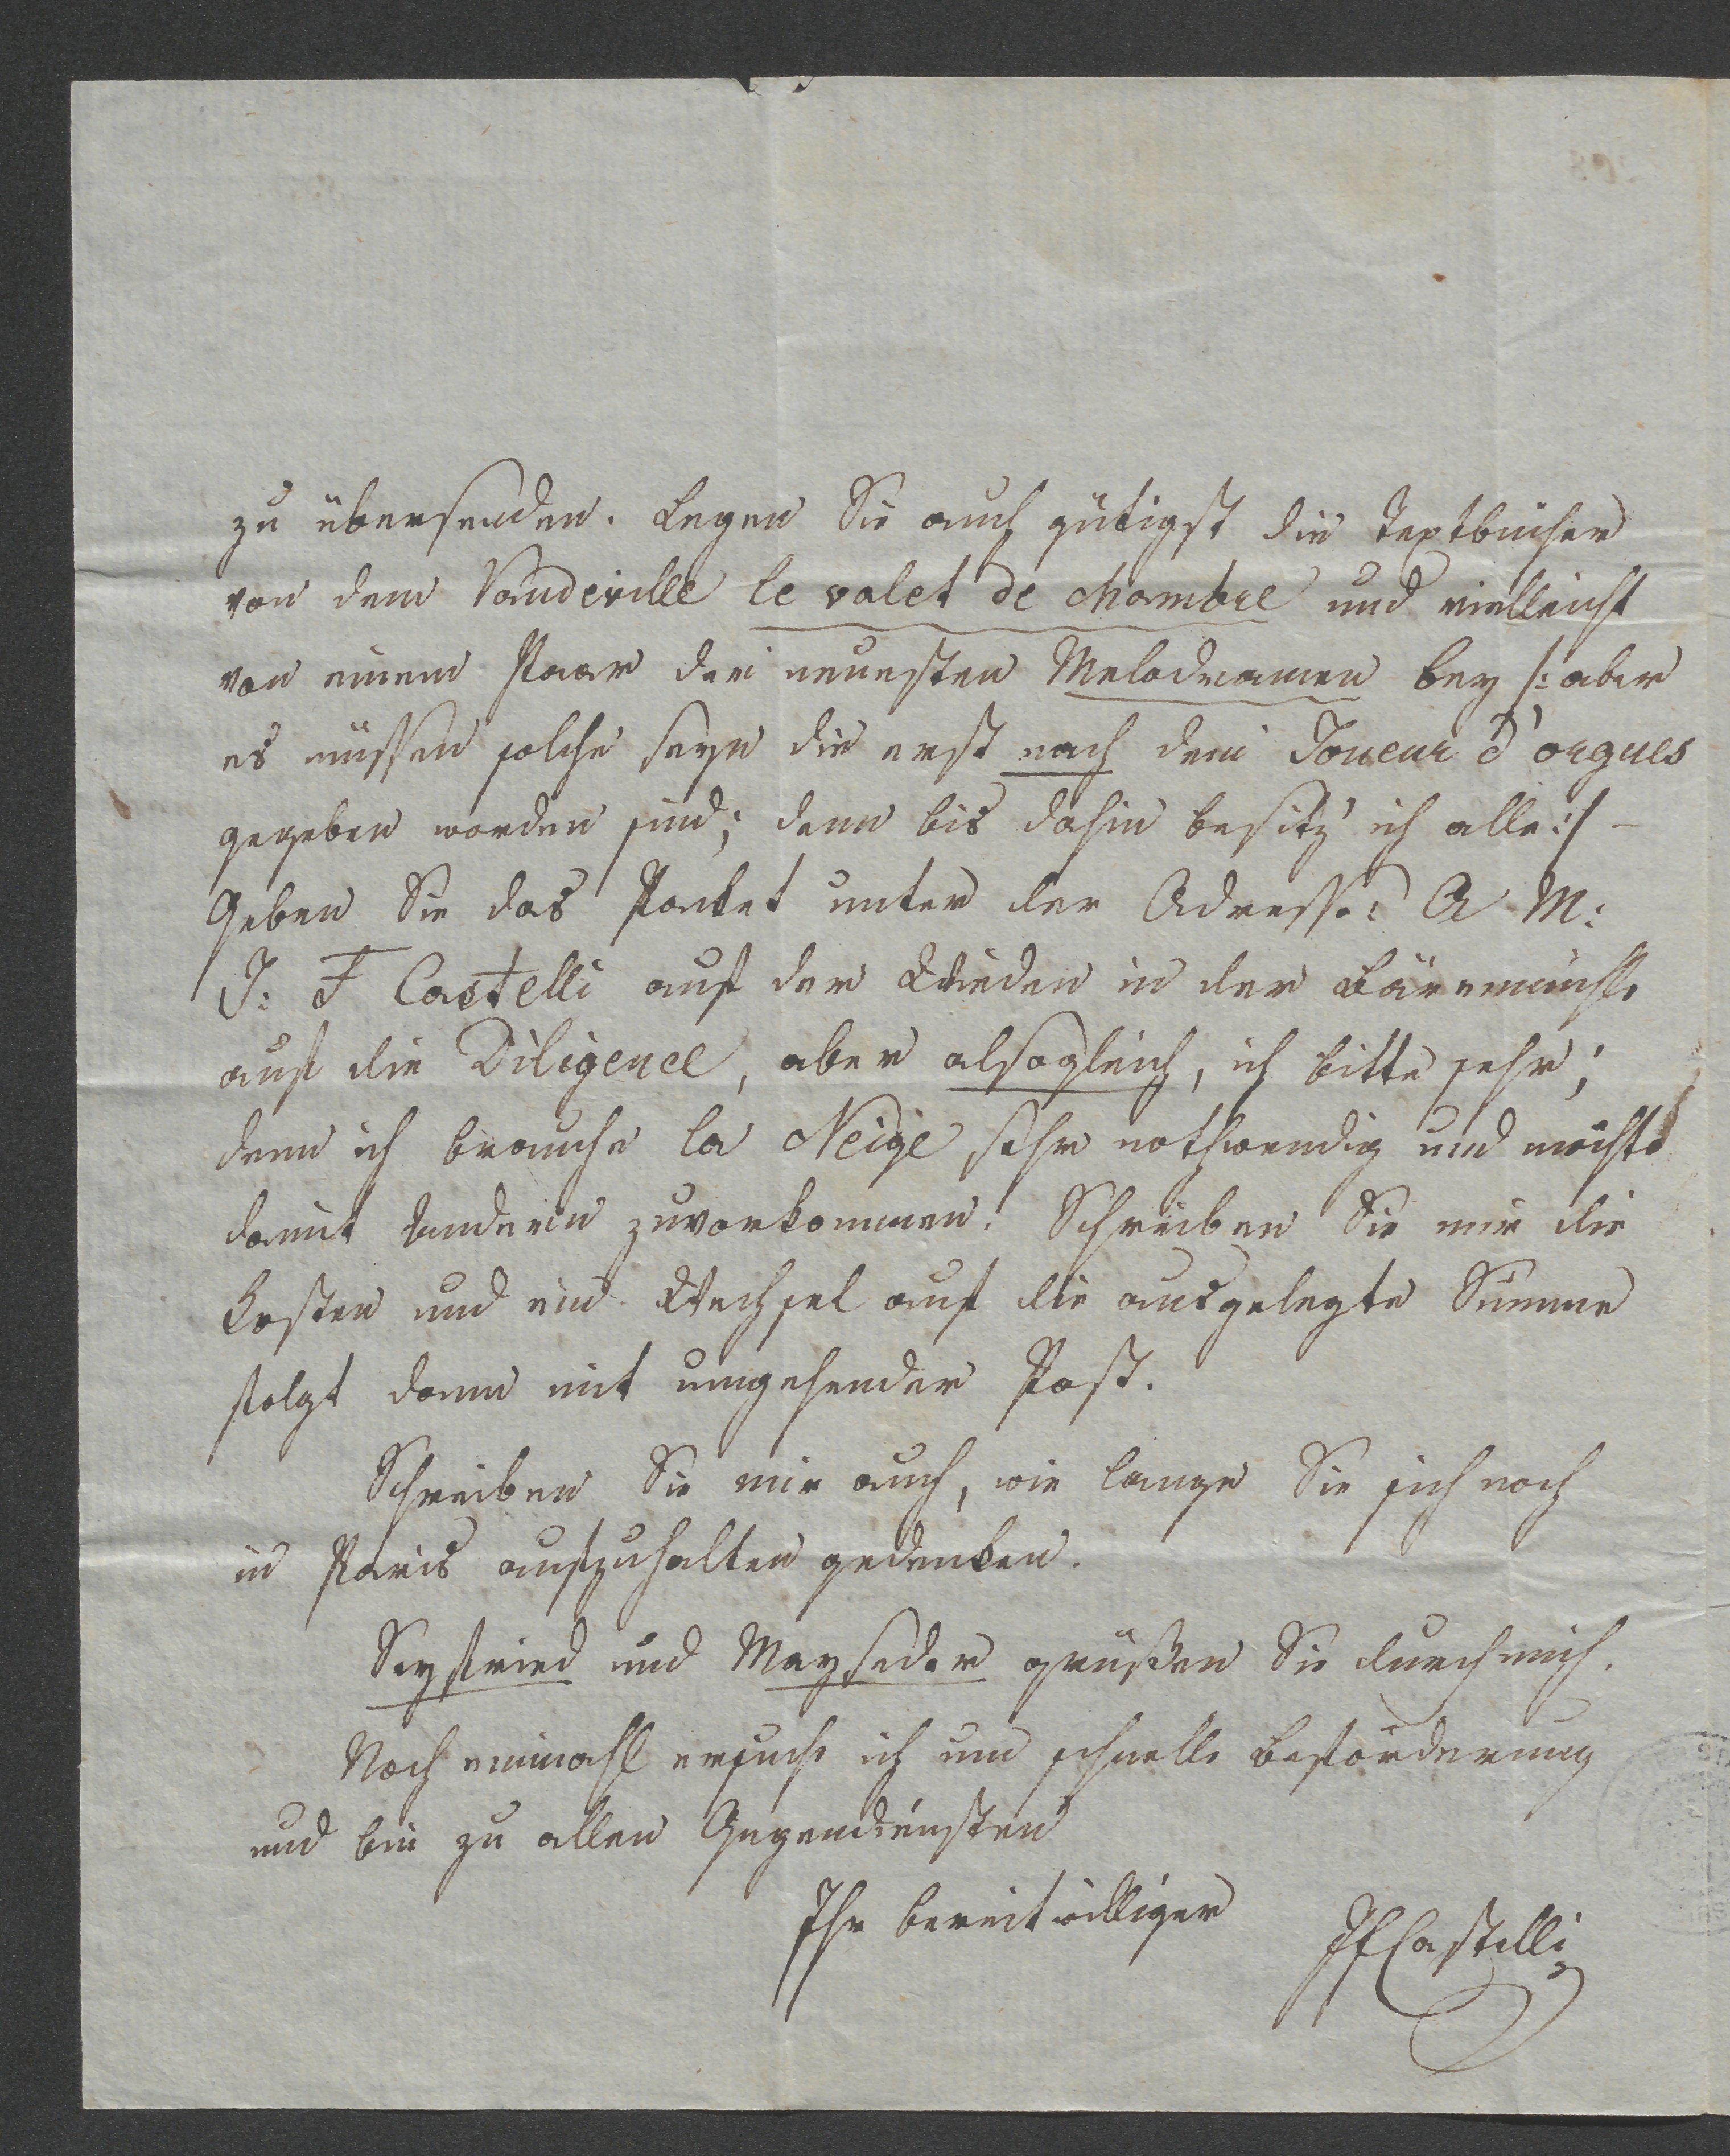 zu übersenden. Legen Sie auch gütigst die Textbücher
von dem Vaudeville le valet de chambre und vielleicht
von einem Paar der neuesten Melodramen bey /: aber
es müssen solche seyn die erst nach dem Joueur d'orgues
gegeben worden sind; denn bis dahin besitz' ich alle :/ –
Geben Sie das Packet unter der Adresse: A M:
J: F Castelli auf der Wieden in der Bärenmühle
auf die Diligence, aber alsogleich, ich bitte sehr;
denn ich brauche la Neige sehr nothwendig und möchte
damit Andern zuvorkommen. Schreiben Sie mir die
Kosten und ein Wechsel auf die ausgelegte Summe
folgt dann mit umgehender Post.
Schreiben Sie mir auch, wie lange Sie sich noch
in Paris aufzuhalten gedenken.
Seyfried und Mayseder grüßen Sie durch mich.
Noch einmahl ersuche ich um schnelle Beförderung
und bin zu allen Gegendiensten
Ihr bereitwilliger JFCastelli